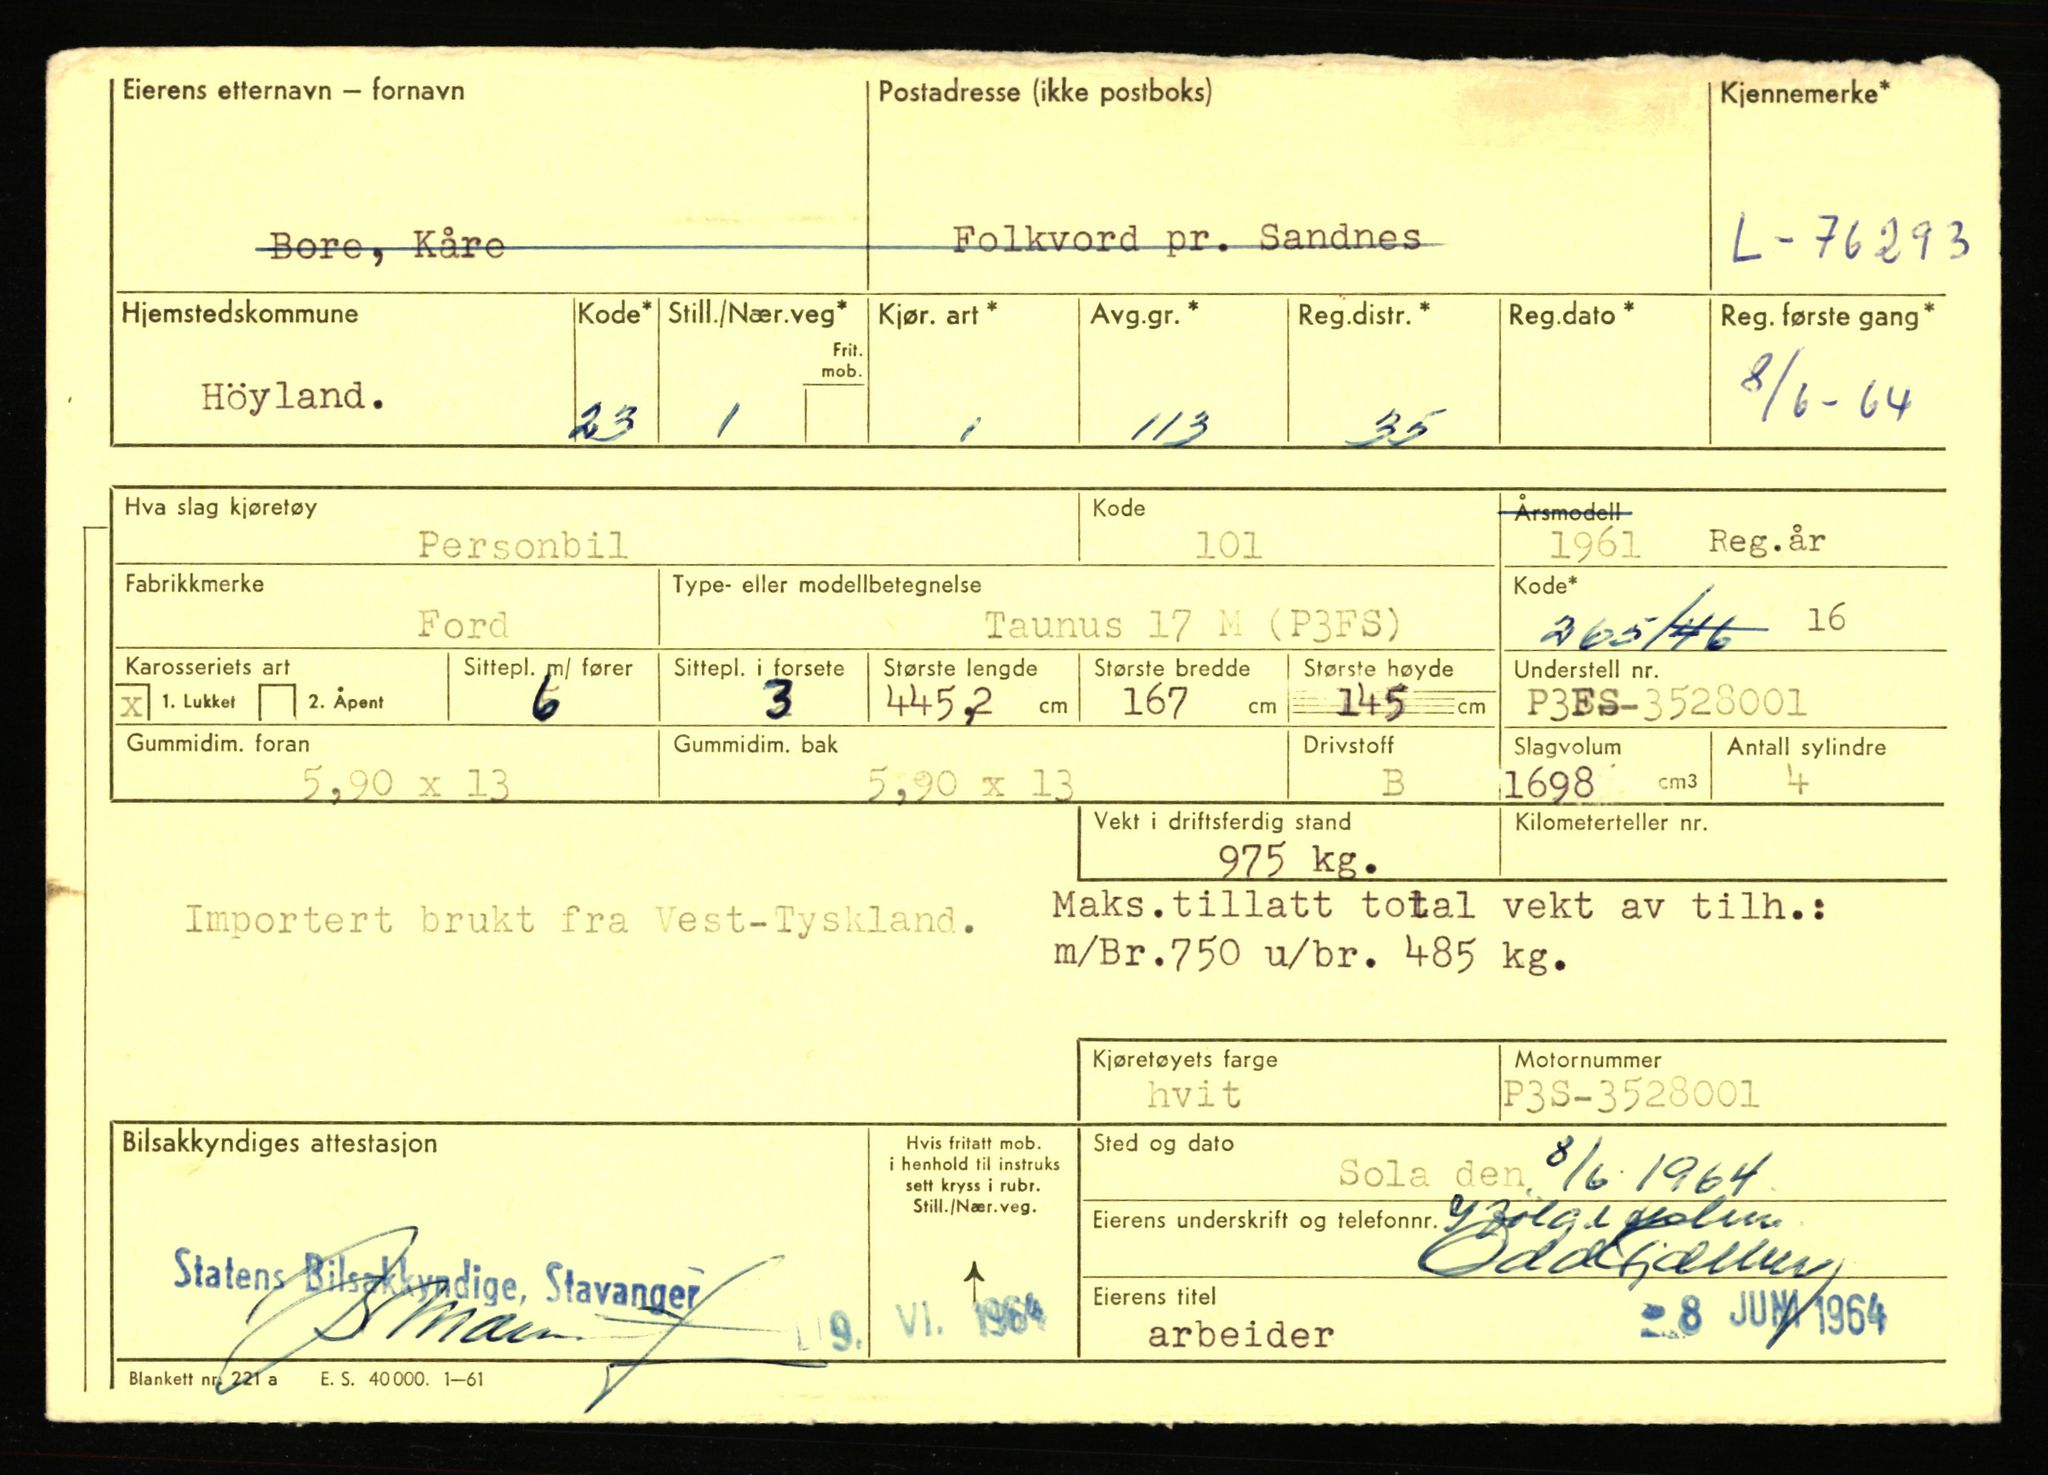 Eierens etternavn – fornavn
Postadresse (ikke postboks)
Kjennemerke*
Bore, Kåre
Folkvord pr. Sandnes
L-76293
Hjemstedskommune
Kode*
Still./Nær.veg*
Frit. mob.
Kjør. art*
Avg.gr.*
Reg.distr.*
Reg.dato*
Reg. første gang*
Höyland.
23
1
1
113
35
8/6-64
Hva slag kjøretøy
Kode
Årsmodell
Personbil
101
1961 Reg.år
Fabrikkmerke
Type- eller modellbetegnelse
Kode*
Ford
Taunus 17 M (P3FS)
265/46 16
Karosseriets art
Sittepl. m/ fører
Sittepl. i forsete
Største lengde
Største bredde
Største høyde
Understell nr.
x 1. Lukket 2. Åpent
6
3
445,2 cm
167 cm
145 cm
P3FS-3528001
Gummidim. foran
Gummidim. bak
Drivstoff
Slagvolum
Antall sylindre
5,90 x 13
5,90 x 13
B
1698 cm3
4
Vekt i driftsferdig stand
Kilometerteller nr.
975 kg.
Importert brukt fra Vest-Tyskland.
Maks.tillatt total vekt av tilh.:
m/Br.750 u/br. 485 kg.
Kjøretøyets farge
Motornummer
hvit
P3S-3528001
Bilsakkyndiges attestasjon
Hvis fritatt mob.
i henhold til instruks
sett kryss i rubr.
Still./Nær.veg.
Sted og dato
Sola den 8/6 1964
Eierens underskrift og telefonnr.
Statens Bilsakkyndige, Stavanger
9. VI. 1964
Eierens titel
arbeider
-8 JUNI 1964
Blankett nr. 221 a E. S. 40000. 1–61